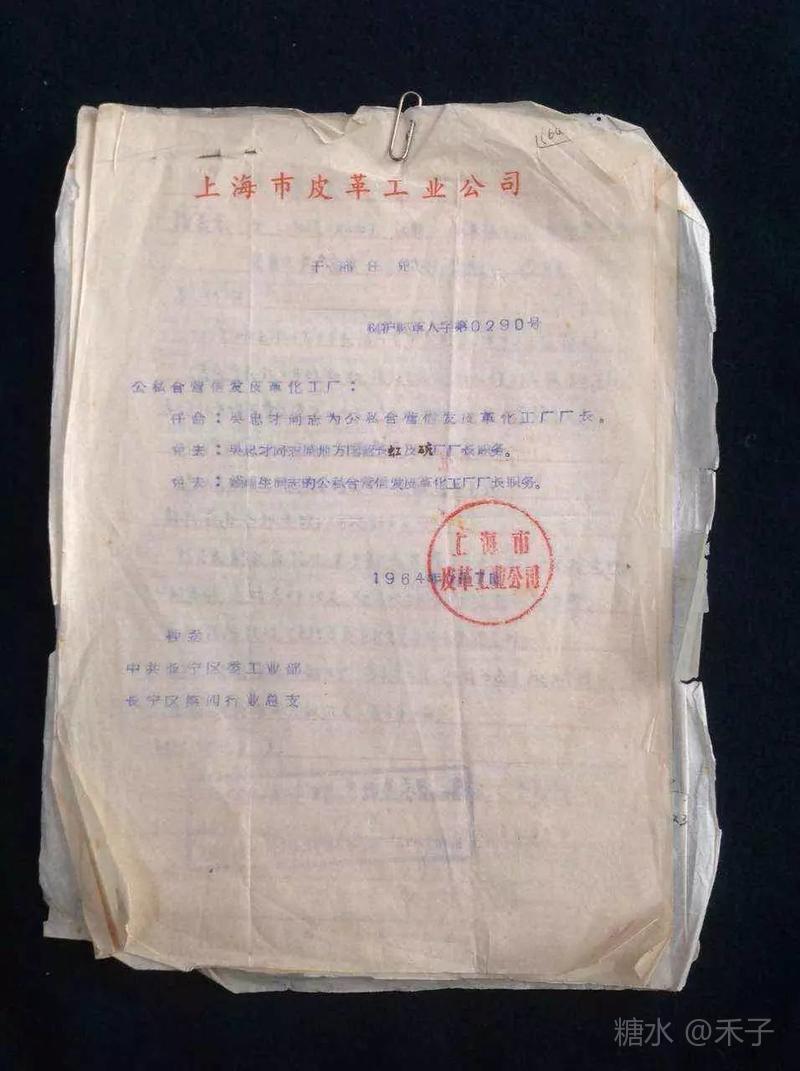 164
上海市皮革工业公司
干部任免
革人字第0290号
公私合营信发皮革化工厂：
任命：吴忠才同志为公私合营信发皮革化工厂厂长。
免去：吴忠才同志原地方国营虹 厂厂长职务。
免去：同志的公私合营信发皮革化工厂厂长职务。
上海市
皮革工业公司
1964年
抄送
中共长宁区委工业部
长宁区行业总支
糖水 @禾子